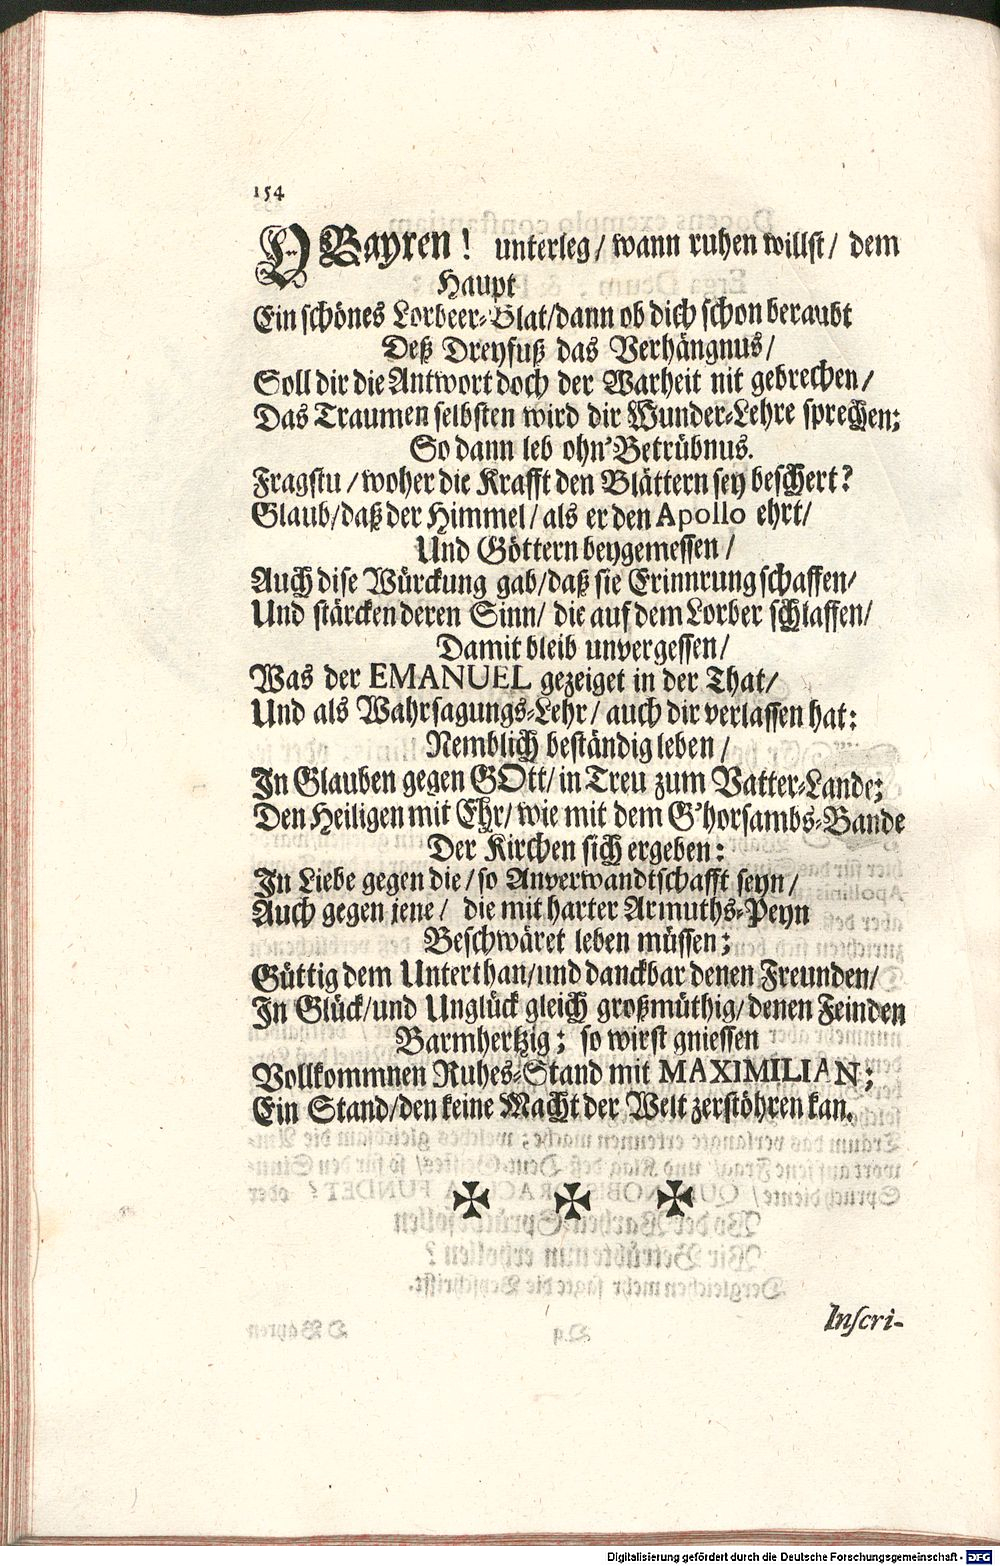 154
O Bayren! unterleg/ wann ruhen willst/ dem
Haupt
Ein schönes Lorbeer-Blat/dann ob dich schon beraubt
Deß Dreyfuß das Verhängnus/
Soll dir die Antwort doch der Warheit nit gebrechen/
Das Traumen selbsten wird dir Wunder-Lehre sprechen;
So dann leb ohn' Betrübnus.
Fragstu / woher die Krafft den Blättern sey beschert?
Glaub/daß der Himmel/ als er den Apollo ehrt/
Und Göttern beygemessen /
Auch dise Würckung gab/daß sie Erinnrung schaffen/
Und stärcken deren Sinn/ die auf dem Lorber schlaffen/
Damit bleib unvergessen/
Was der EMANUEL gezeiget in der That/
Und als Wahrsagungs-Lehr/ auch dir verlassen hat:
Nemblich beständig leben /
In Glauben gegen GOtt/ in Treu zum Vatter-Lande;
Den Heiligen mit Ehr/ wie mit dem G'horsambs-Bande
Der Kirchen sich ergeben:
In Liebe gegen die/ so Anverwandtschafft seyn/
Auch gegen jene/ die mit harter Armuths-Peyn
Beschwäret leben müssen;
Güttig dem Unterthan/und danckbar denen Freunden/
In Glück/und Unglück gleich großmüthig/ denen Feinden
Barmhertzig; so wirst gniessen
Vollkommnen Ruhes-Stand mit MAXIMILIAN;
Ein Stand/den keine Macht der Welt zerstöhren kan.
Inscri-
Digitalisierung gefördert durch die Deutsche Forschungsgemeinschaft - DFG